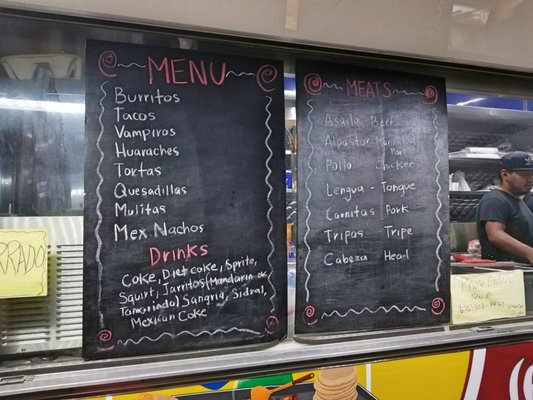 MENU
Burritos
Tacos
Vampiros
Huaraches
Tortas
Quesadillas
Mulitas
Mex Nachos
Drinks
Coke, Diet coke, Sprite,
Squirt, Jarritos (Mandarin or
Tamorindo) Sangria, Sidral,
Mexican Coke
MEATS
Asada Beef
Alpastor Marinated
Pork
Pollo Chicken
Lengua - Tongue
Carnitas Pork
Tripas Tripe
Cabeza Head
RRADO
Phone